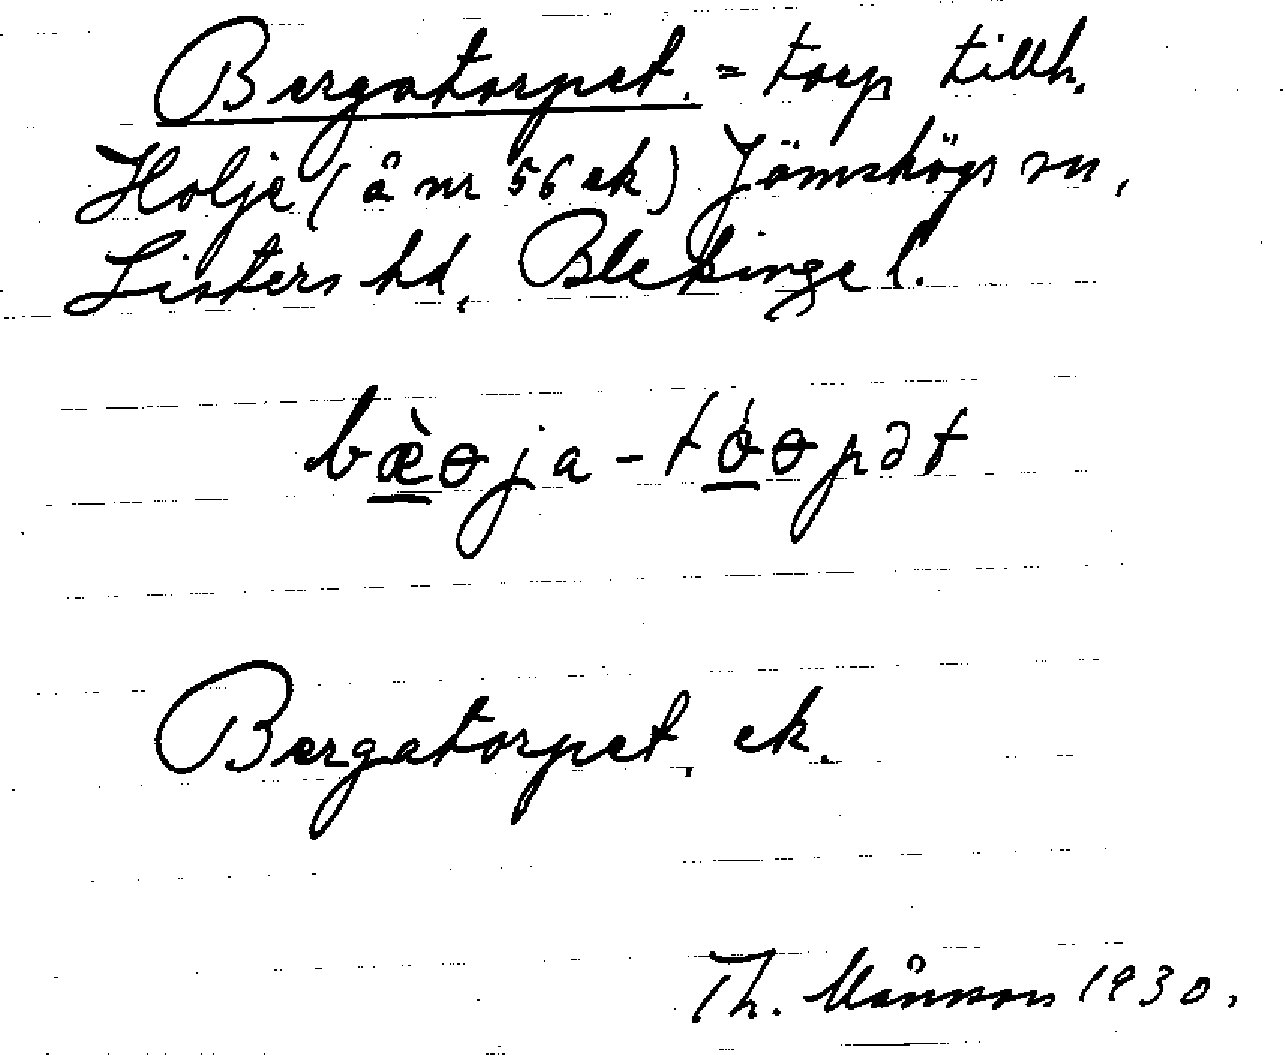 Bergatorpet. = torp tillh.
Holje (å nr 56 ek) Jämshögs sn,
Listers hd, Blekinge l.
bæ̀ɵja-tɵ́ɵpət
Bergatorpet. ek.
Th. Månsson 1930.